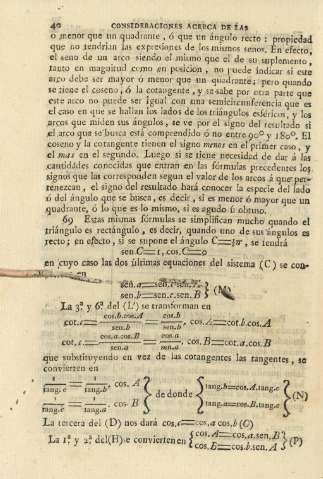 40 CONSIDERACIONES ACERCA DE LAS
o menor que un quadrante, ó que un ángulo recto: propiedad
que no tendrían las expresiones de los mismos senos. En efecto,
el seno de un arco siendo el mismo que el de su suplemento,
tanto en magnitud como en posicion, no puede indicar si este
arco debe ser mayor ó menor que un quadrante; pero quando
se tiene el coseno, ó la cotangente, y se sabe por otra parte que
este arco no puede ser igual con una semicircunferencia que es
el caso en que se hallan los lados de los triángulos esféricos, y los
arcos que miden sus ángulos, se ve por el signo del resultado si
el arco que se busca está comprendido ó no entre 90° y 180°. El
coseno y la cotangente tienen el signo menos en el primer caso, y
el mas en el segundo. Luego si se tiene necesidad de dar á las
cantidades conocidas que entran en las fórmulas precedentes los
signos que las corresponden segun el valor de los arcos á que per-
tenezcan, el signo del resultado hará conocer la especie del lado
ó del ángulo que se busca, es decir, si es menor ó mayor que un
quadrante, ó lo que es lo mismo, si es agudo ú obtuso.
69 Estas mismas fórmulas se simplifican mucho quando el
triángulo es rectángulo, es decir, quando uno de sus ángulos es
recto; en efecto, si se supone el ángulo C=, se tendrá
sen C=1, cos. C=0
en cuyo caso las dos últimas equaciones del sistema (C) se con-
en
sen. a=sen.c.sen. A
sen. b=sen.c.sen. B } (M)
La 3.ª y 6.ª del (L') se transforman en
cot.c=cos.b.cos.A/sen.b=cos.b/sen.b, cos.A=cot.b.cos.A
cot.c=cos.a.cos.B/sen.a=cos.a/sen.a, cos.B=cot.a.cos.B
que substituyendo en vez de las cotangentes las tangentes, se
convierten en
1/tang.c=1/tang.b, cos. A } de donde { tang.b=cos.A.tang.c
1/tang.c=1/tang.a, cos. B } { tang.a=cos.B.tang.c } (N)
La tercera del (D) nos dará cos.c=cos.a cos.b (O)
La 1.ª y 2.ª del(H)se convierten en { cos.A=cos.a.sen.B
cos.B=cos.b.sen.A } (P)